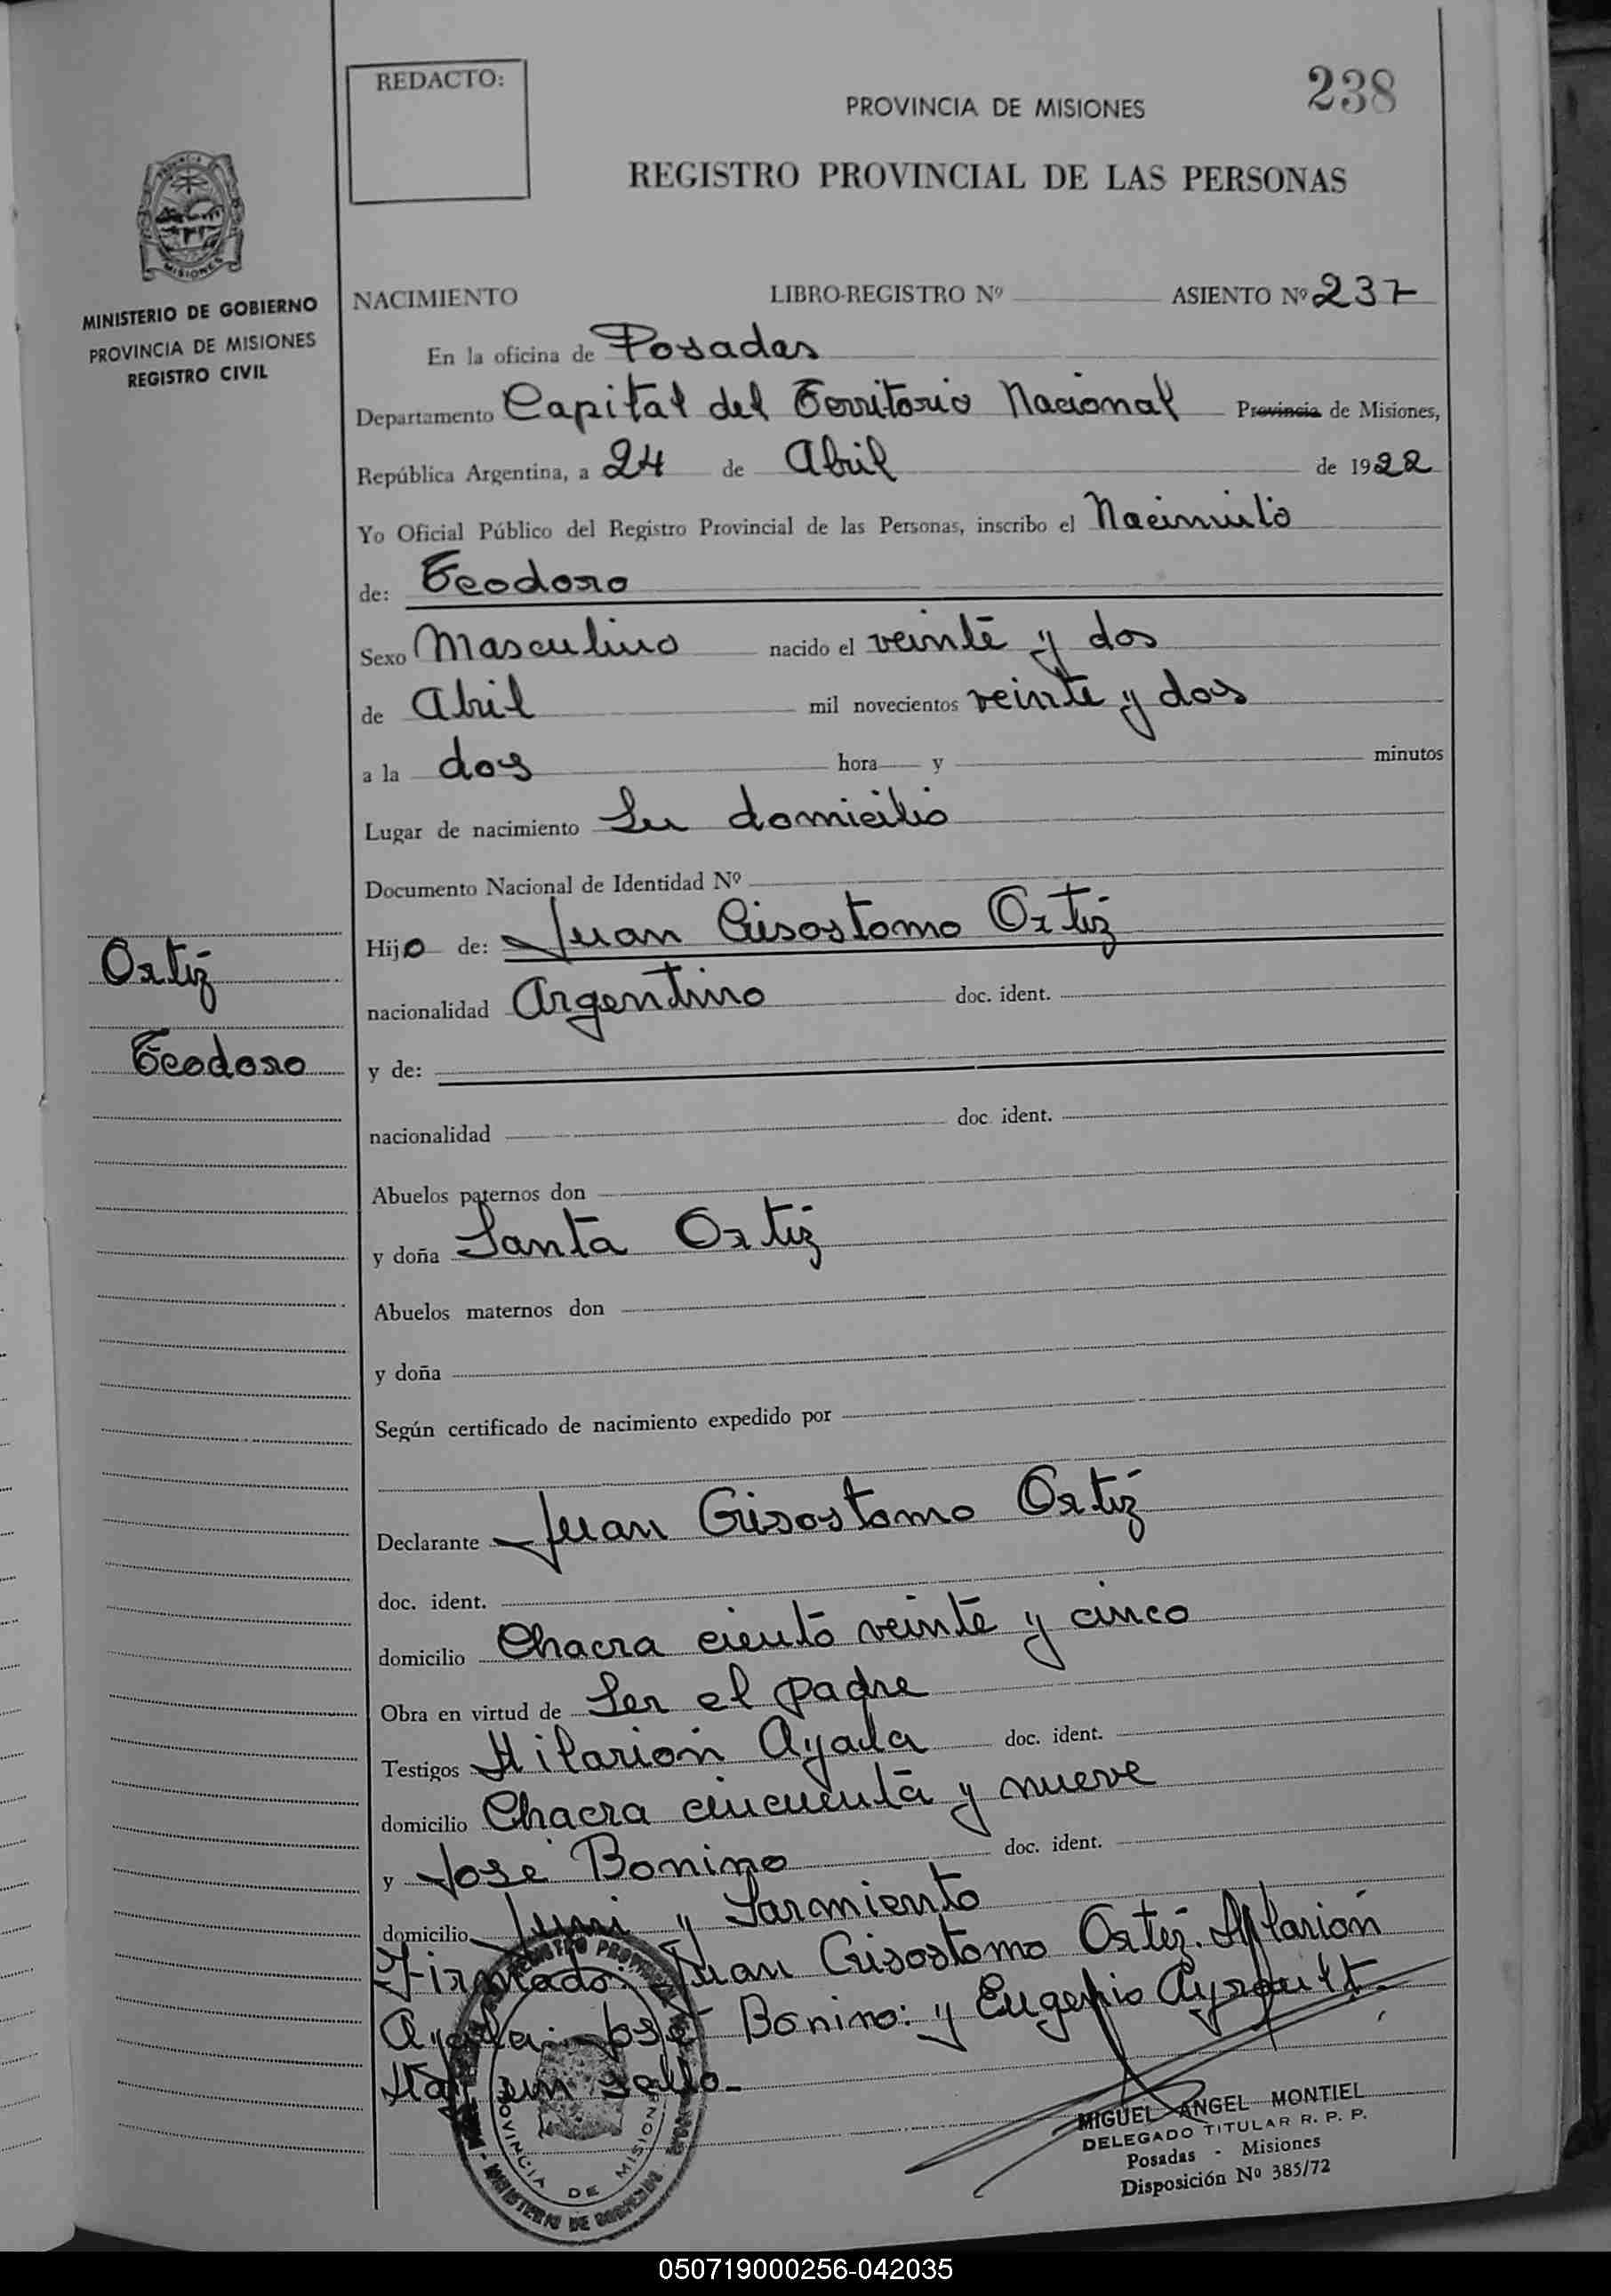 REDACTO:
238
PROVINCIA DE MISIONES
REGISTRO PROVINCIAL DE LAS PERSONAS
MISIONES
MINISTERIO DE GOBIERNO
PROVINCIA DE MISIONES
REGISTRO CIVIL
NACIMIENTO LIBRO-REGISTRO Nº ASIENTO Nº 237
En la oficina de Posadas
Departamento Capital del Territorio Nacional Provincia de Misiones,
República Argentina, a 24 de Abril de 1922
Yo Oficial Público del Registro Provincial de las Personas, inscribo el Nacimiento
de: Teodoro
Sexo Masculino nacido el veinte y dos
de Abril mil novecientos veinte y dos
a la dos hora y minutos
Lugar de nacimiento Su domicilio
Documento Nacional de Identidad Nº
Hijo de: Juan Crisostomo Ortiz
nacionalidad Argentino doc. ident.
Ortiz
Teodoro
y de:
nacionalidad doc. ident.
Abuelos paternos don
y doña Santa Ortiz
Abuelos maternos don
y doña
Según certificado de nacimiento expedido por
Declarante Juan Crisostomo Ortiz
doc. ident.
domicilio Chacra ciento veinte y cinco
Obra en virtud de Ser el padre
Testigos Hilarión Ayala doc. ident.
domicilio Chacra cincuenta y nueve
y José Bonino doc. ident.
domicilio y Sarmiento
Firmado: Juan Crisostomo Ortiz. Hilarión
Ayala. José Bonino: y Eugenio Ayrault.
Hay un sello.
PROVINCIA DE MISIONES
MINISTERIO DE GOBIERNO
MIGUEL ANGEL MONTIEL
DELEGADO TITULAR R. P. P.
Posadas - Misiones
Disposición Nº 385/72
050719000256-042035